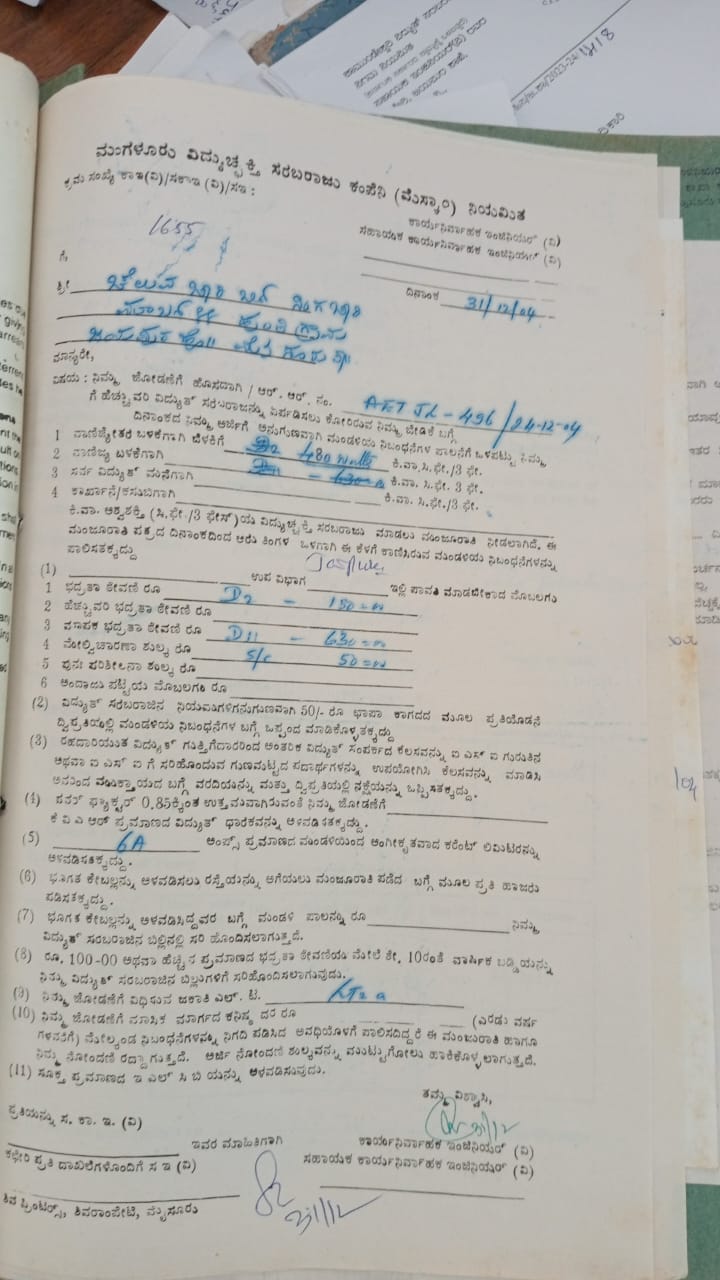 ಮಂಗಳೂರು ವಿದ್ಯುಚ್ಛಕ್ತಿ ಸರಬರಾಜು ಕಂಪೆನಿ (ಮೆಸ್ಕಾಂ) ನಿಯಮಿತ
ಕ್ರಮ ಸಂಖ್ಯೆ ಕಾಇ(ವಿ)/ಸಕಾಇ (ವಿ)/ಸಇ :
1655
ಕಾರ್ಯನಿರ್ವಾಹಕ ಇಂಜಿನಿಯರ್ (ವಿ)
ಸಹಾಯಕ ಕಾರ್ಯನಿರ್ವಾಹಕ ಇಂಜಿನಿಯರ್ (ವಿ)
ಗೆ,
ದಿನಾಂಕ 31/12/04
ಶ್ರೀ
ಮಾನ್ಯರೇ,
ವಿಷಯ : ನಿಮ್ಮ ಜೋಡಣೆಗೆ ಹೊಸದಾಗಿ / ಆರ್. ಆರ್. ನಂ. AET JL - 496/24-12-04
ಗೆ ಹೆಚ್ಚುವರಿ ವಿದ್ಯುತ್ ಸರಬರಾಜನ್ನು ಏರ್ಪಡಿಸಲು ಕೋರಿರುವ ನಿಮ್ಮ ಬೇಡಿಕೆ ಬಗ್ಗೆ
ದಿನಾಂಕದ ನಿಮ್ಮ ಅರ್ಜಿಗೆ ಅನುಗುಣವಾಗಿ ಮಂಡಳಿಯ ನಿಬಂಧನೆಗಳ ಪಾಲನೆಗೆ ಒಳಪಟ್ಟು ನಿಮ್ಮ
1 ವಾಣಿಜ್ಯೇತರ ಬಳಕೆಗಾಗಿ ಬೆಳಕಿಗೆ 480 watts ಕಿ.ವಾ.ಸಿ.ಫೇ./3 ಫೇ.
2 ವಾಣಿಜ್ಯ ಬಳಕೆಗಾಗಿ ಕಿ.ವಾ. ಸಿ.ಫೇ. 3 ಫೇ.
3 ಸರ್ವ ವಿದ್ಯುತ್ ಮನೆಗಾಗಿ ಕಿ.ವಾ. ಸಿ.ಫೇ./3 ಫೇ.
4 ಕಾರ್ಖಾನೆ/ಕಸುಬಿಗಾಗಿ
ಕಿ.ವಾ. ಅಶ್ವಶಕ್ತಿ (ಸಿ.ಫೇ./3 ಫೇಸ್)ಯ ವಿದ್ಯುಚ್ಛಕ್ತಿ ಸರಬರಾಜು ಮಾಡಲು ಮಂಜೂರಾತಿ ನೀಡಲಾಗಿದೆ. ಈ
ಮಂಜೂರಾತಿ ಪತ್ರದ ದಿನಾಂಕದಿಂದ ಆರು ತಿಂಗಳ ಒಳಗಾಗಿ ಈ ಕೆಳಗೆ ಕಾಣಿಸಿರುವ ಮಂಡಳಿಯ ನಿಬಂಧನೆಗಳನ್ನು
ಪಾಲಿಸತಕ್ಕದ್ದು
(1) ಉಪ ವಿಭಾಗ ಇಲ್ಲಿ ಪಾವತಿ ಮಾಡಬೇಕಾದ ಮೊಬಲಗು
1 ಭದ್ರತಾ ಠೇವಣಿ ರೂ D2 - 150=00
2 ಹೆಚ್ಚುವರಿ ಭದ್ರತಾ ಠೇವಣಿ ರೂ
3 ಮಾಪಕ ಭದ್ರತಾ ಠೇವಣಿ ರೂ D11 - 630=00
4 ಮೇಲ್ವಿಚಾರಣಾ ಶುಲ್ಕ ರೂ S/c 50=00
5 ಪುನಃ ಪರಿಶೀಲನಾ ಶುಲ್ಕ ರೂ
6 ಅಂದಾಜು ಪಟ್ಟಿಯ ಮೊಬಲಗು ರೂ
(2) ವಿದ್ಯುತ್ ಸರಬರಾಜಿನ ನಿಯಮಗಳಿಗನುಗುಣವಾಗಿ 50/- ರೂ ಛಾಪಾ ಕಾಗದದ ಮೂಲ ಪ್ರತಿಯೊಡನೆ
ದ್ವಿಪ್ರತಿಯಲ್ಲಿ ಮಂಡಳಿಯ ನಿಬಂಧನೆಗಳ ಬಗ್ಗೆ ಒಪ್ಪಂದ ಮಾಡಿಕೊಳ್ಳತಕ್ಕದ್ದು
(3) ರಹದಾರಿಯುತ ವಿದ್ಯುತ್ ಗುತ್ತಿಗೆದಾರರಿಂದ ಆಂತರಿಕ ವಿದ್ಯುತ್ ಸಂಪರ್ಕದ ಕೆಲಸವನ್ನು ಐ ಎಸ್ ಐ ಗುರುತಿನ
ಅಥವಾ ಐ ಎಸ್ ಐ ಗೆ ಸರಿಹೊಂದುವ ಗುಣಮಟ್ಟದ ಪದಾರ್ಥಗಳನ್ನು ಉಪಯೋಗಿಸಿ ಕೆಲಸವನ್ನು ಮಾಡಿಸಿ
ಅನಂದ ಮುಕ್ತಾಯದ ಬಗ್ಗೆ ವರದಿಯನ್ನು ಮತ್ತು ದ್ವಿಪ್ರತಿಯಲ್ಲಿ ನಕ್ಷೆಯನ್ನು ಒಪ್ಪಿಸತಕ್ಕದ್ದು.
(4) ಪವರ್ ಫ್ಯಾಕ್ಟರ್ 0.85ಕ್ಕಿಂತ ಉತ್ತಮವಾಗಿರುವಂತೆ ನಿಮ್ಮ ಜೋಡಣೆಗೆ
ಕೆ ವಿ ಎ ಆರ್ ಪ್ರಮಾಣದ ವಿದ್ಯುತ್ ಧಾರಕವನ್ನು ಅಳವಡಿಸತಕ್ಕದ್ದು.
(5) 6A ಆಂಪ್ಸ್ ಪ್ರಮಾಣದ ಮಂಡಳಿಯಿಂದ ಅಂಗೀಕೃತವಾದ ಕರೆಂಟ್ ಲಿಮಿಟರನ್ನು
ಅಳವಡಿಸತಕ್ಕದ್ದು.
(6) ಭೂಗತ ಕೇಬಲ್ಲನ್ನು ಅಳವಡಿಸಲು ರಸ್ತೆಯನ್ನು ಅಗೆಯಲು ಮಂಜೂರಾತಿ ಪಡೆದ ಬಗ್ಗೆ ಮೂಲ ಪ್ರತಿ ಹಾಜರು
ಪಡಿಸತಕ್ಕದ್ದು.
(7) ಭೂಗತ ಕೇಬಲ್ಲನ್ನು ಅಳವಡಿಸಿದ್ದವರ ಬಗ್ಗೆ ಮಂಡಳಿ ಪಾಲನ್ನು ರೂ ನಿಮ್ಮ
ವಿದ್ಯುತ್ ಸರಬರಾಜಿನ ಬಿಲ್ಲಿನಲ್ಲಿ ಸರಿ ಹೊಂದಿಸಲಾಗುತ್ತದೆ.
(8) ರೂ. 100-00 ಅಥವಾ ಹೆಚ್ಚಿನ ಪ್ರಮಾಣದ ಭದ್ರತಾ ಠೇವಣಿಯ ಮೇಲೆ ಶೇ. 10ರಂತೆ ವಾರ್ಷಿಕ ಬಡ್ಡಿಯನ್ನು
ನಿಮ್ಮ ವಿದ್ಯುತ್ ಸರಬರಾಜಿನ ಬಿಲ್ಲುಗಳಿಗೆ ಸರಿಹೊಂದಿಸಲಾಗುವುದು.
(9) ನಿಮ್ಮ ಜೋಡಣೆಗೆ ವಿಧಿಸುವ ಜಕಾತಿ ಎಲ್. ಟಿ. LT2 a
(10) ನಿಮ್ಮ ಜೋಡಣೆಗೆ ಮಾಸಿಕ ಮಾರ್ಗದ ಕನಿಷ್ಠ ದರ ರೂ (ಎರಡು ವರ್ಷ
ಗಳವರೆಗೆ) ಮೇಲ್ಕಂಡ ನಿಬಂಧನೆಗಳನ್ನು ನಿಗದಿ ಪಡಿಸಿದ ಅವಧಿಯೊಳಗೆ ಪಾಲಿಸದಿದ್ದರೆ ಈ ಮಂಜೂರಾತಿ ಹಾಗೂ
ನಿಮ್ಮ ನೋಂದಣಿ ರದ್ದಾಗುತ್ತದೆ. ಅರ್ಜಿ ನೋಂದಣಿ ಶುಲ್ಕವನ್ನು ಮುಟ್ಟುಗೋಲು ಹಾಕಿಕೊಳ್ಳಲಾಗುತ್ತದೆ.
(11) ಸೂಕ್ತ ಪ್ರಮಾಣದ ಇ ಎಲ್ ಸಿ ಬಿ ಯನ್ನು ಅಳವಡಿಸುವುದು.
ತಮ್ಮ ವಿಶ್ವಾಸಿ,
ಪ್ರತಿಯನ್ನು ಸ. ಕಾ. ಇ. (ವಿ)
ಇವರ ಮಾಹಿತಿಗಾಗಿ
ಕಾರ್ಯನಿರ್ವಾಹಕ ಇಂಜಿನಿಯರ್ (ವಿ)
ಕಛೇರಿ ಪ್ರತಿ ದಾಖಲೆಗಳೊಂದಿಗೆ ಸ ಇ (ವಿ)
ಸಹಾಯಕ ಕಾರ್ಯನಿರ್ವಾಹಕ ಇಂಜಿನಿಯರ್ (ವಿ)
31/12
ಶಿವ ಪ್ರಿಂಟರ್ಸ್, ಶಿವರಾಂಪೇಟೆ, ಮೈಸೂರು